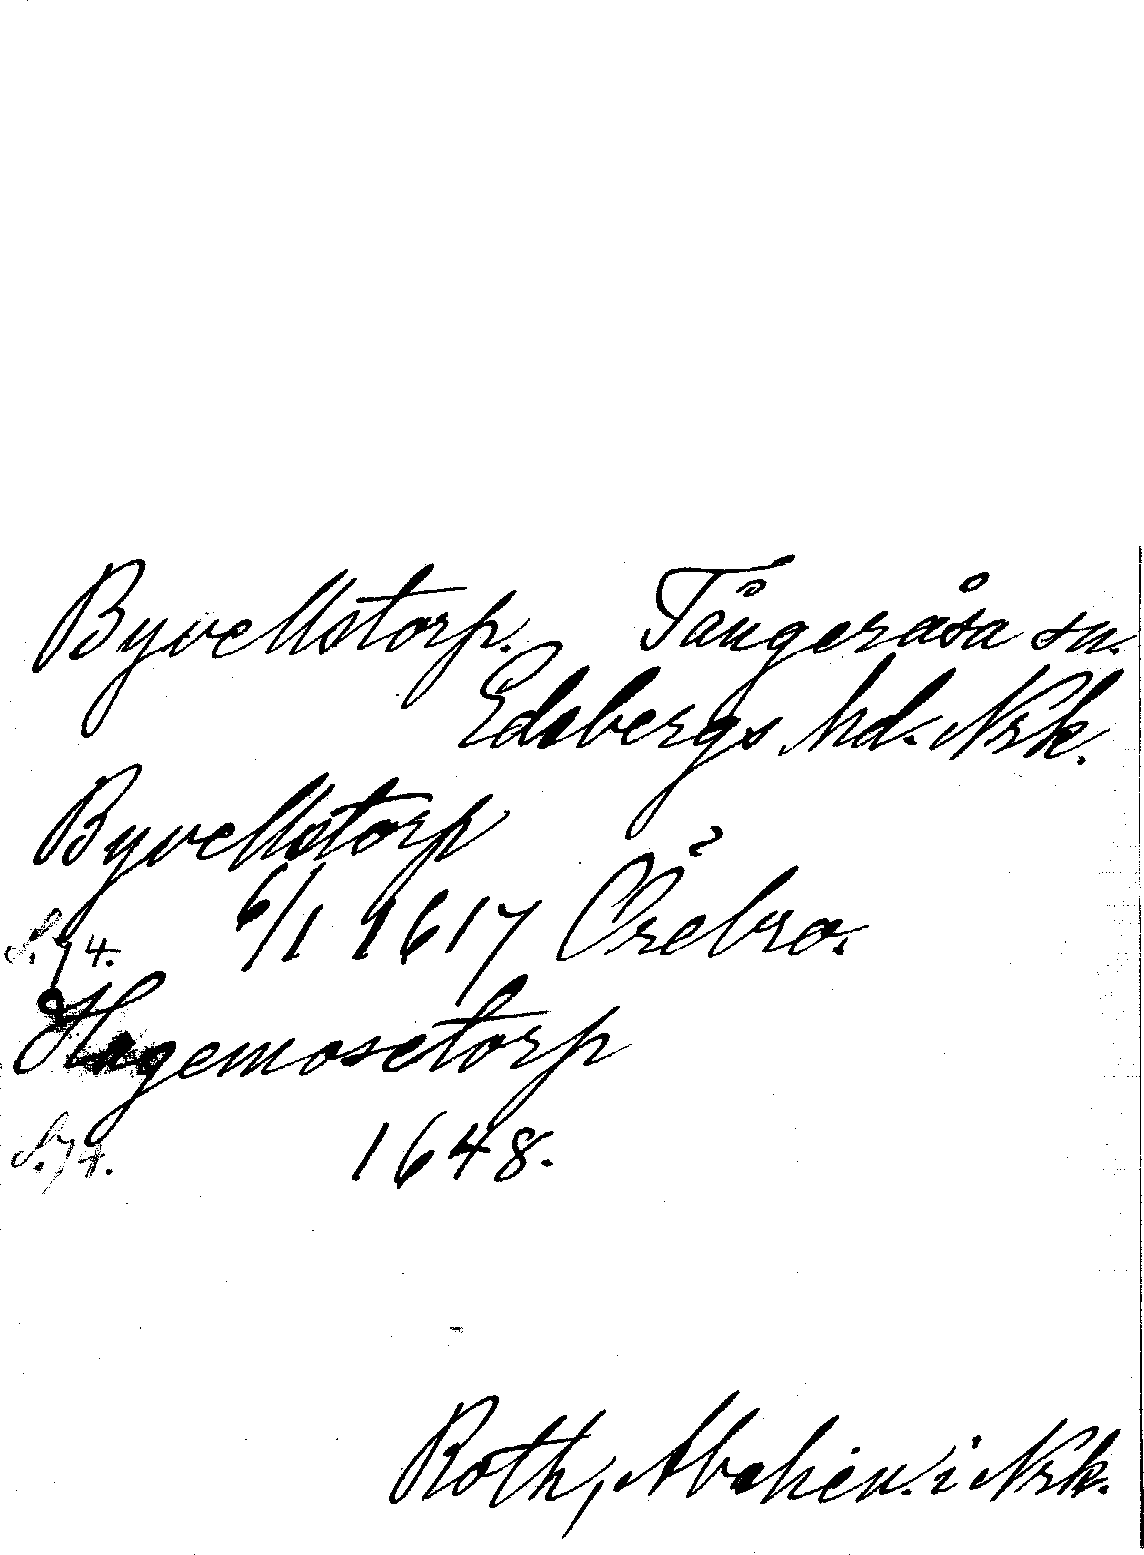 Byvelkstorp. Tångeråsa sn.
Edsbergs hd. Nrk.
Byvellstorp
S. 74. 6/1 1617 Örebro.
Hagemosetorp
S. 74. 1648.
Roth, i Nrk.